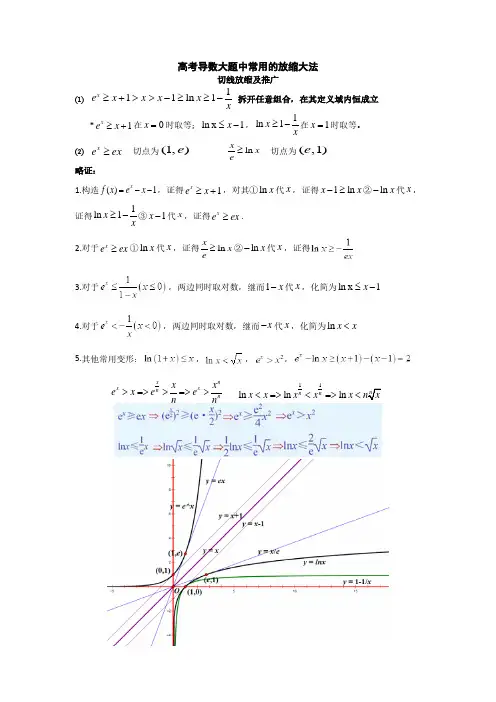 高考导数大题中常用的放缩大法
切线放缩及推广
⑴ e^x ≥ x+1 > x > x−1 ≥ ln x ≥ 1−1/x 拆开任意组合，在其定义域内恒成立
*e^x ≥ x+1在x=0时取等；ln x ≤ x−1，ln 1 ≥ 1−1/x在x=1时取等。
⑵ e^x ≥ ex 切点为(1, e) x/e ≥ ln x 切点为(e,1)
略证：
1.构造f(x)=e^x−x−1，证得e^x ≥ x+1，对其①ln x代x，证得x−1 ≥ ln x②−ln x代x，
证得ln x ≥ 1−1/x③x−1代x，证得e^x ≥ ex.
2.对于e^x ≥ ex①ln x代x，证得x/e ≥ ln x②−ln x代x，证得ln x ≥ −1/ex
3.对于e^x ≤ 1/(1−x) (x ≤ 0)，两边同时取对数，继而1−x代x，化简为ln x ≤ x−1
4.对于e^x < −1/x (x<0)，两边同时取对数，继而−x代x，化简为ln x < x
5.其他常用变形：ln(1+x) ≤ x，ln x < √x，e^x > x²，e^x−ln x ≥ (x+1)−(x−1)=2
e^x > x => e^(x/n) > x/n => e^x > x^n/n^n ln x < x => ln x^(1/n) < x^(1/n) => ln x < n ⁿ√x
e^x≥ex ⇒ (e^(x/2))²≥(e·x/2)² ⇒ e^x≥e²/4 x² ⇒ e^x>x²
lnx≤1/e x ⇒ ln√x≤1/e √x ⇒ 1/2 lnx≤1/e √x ⇒ lnx≤2/e √x ⇒ lnx<√x
y = ex
y = e^x
y = x+1
y = x-1
(1,e)
y = x
y = x/e
y = lnx
(0,1)
(e,1)
O
(1,0)
y = 1-1/x